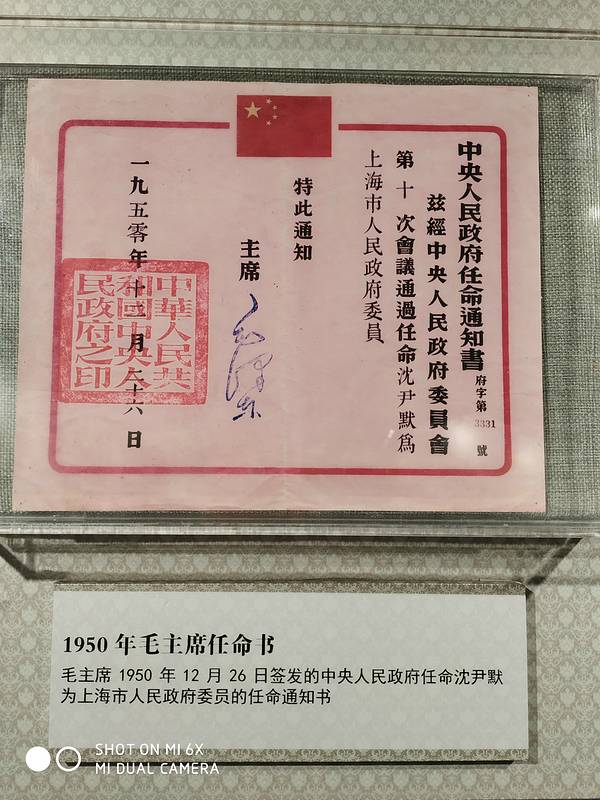 中央人民政府任命通知書
府字第3331號
兹經中央人民政府委員會
第十次會議通過任命沈尹默爲
上海市人民政府委員
特此通知
主席
毛澤东
一九五零年十二月二十六日
中華人民共
和國中央人
民政府之印
1950 年毛主席任命书
毛主席 1950 年 12 月 26 日签发的中央人民政府任命沈尹默
为上海市人民政府委员的任命通知书
SHOT ON MI 6X
MI DUAL CAMERA